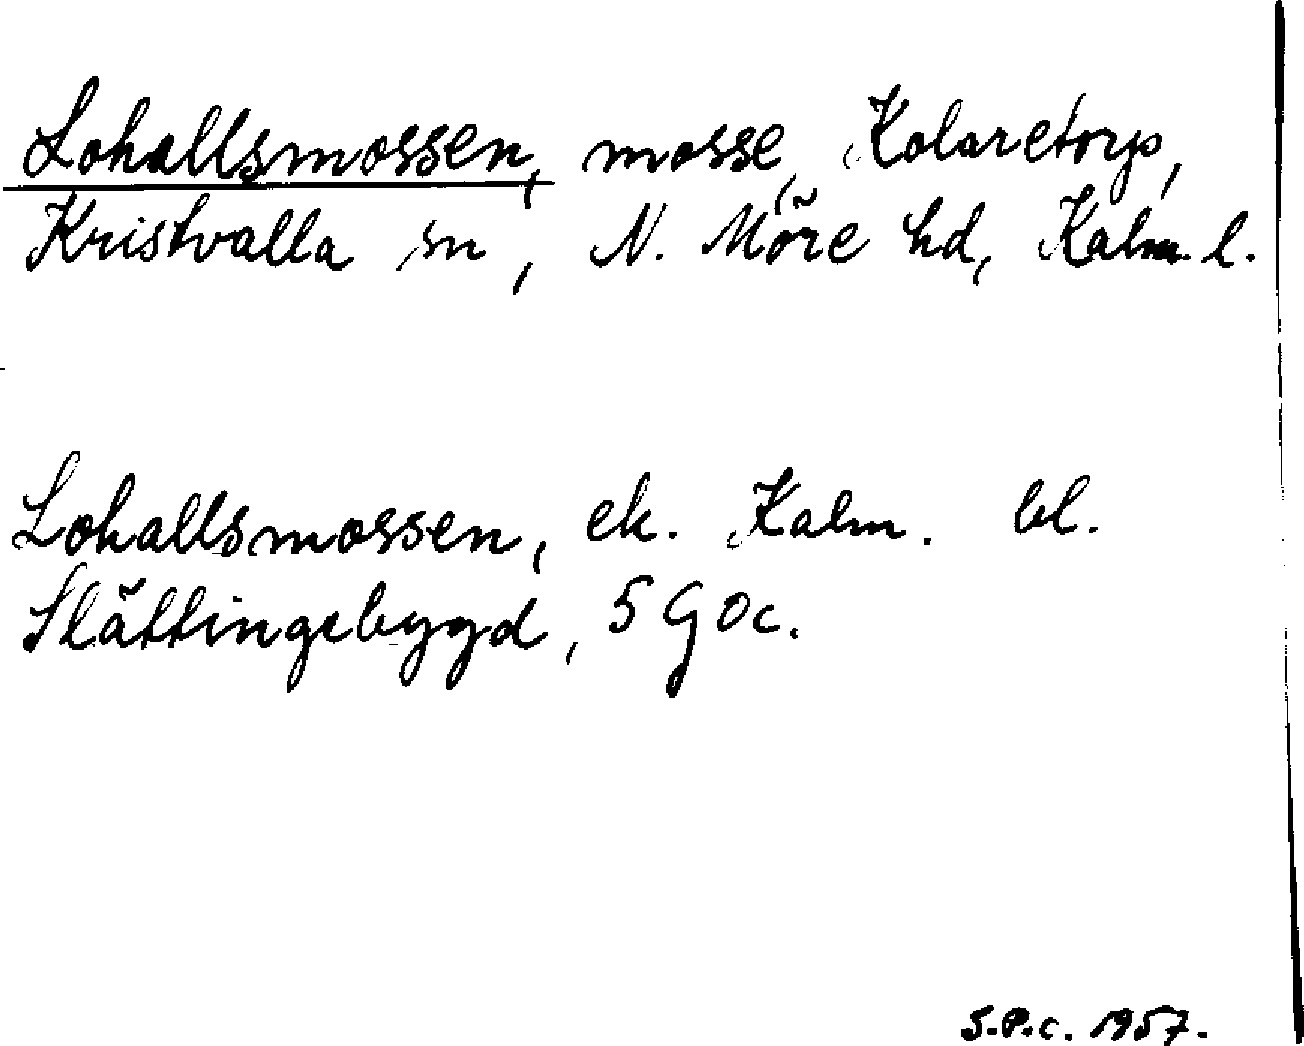 Lohallsmossen, mosse, Kolaretorp,
Kristvalla sn, N. Möre hd, Kalm. l.
Lohallsmossen, ek. Kalm. bl.
Slättingebygd, 5 G O c.
S.P.C. 1957.